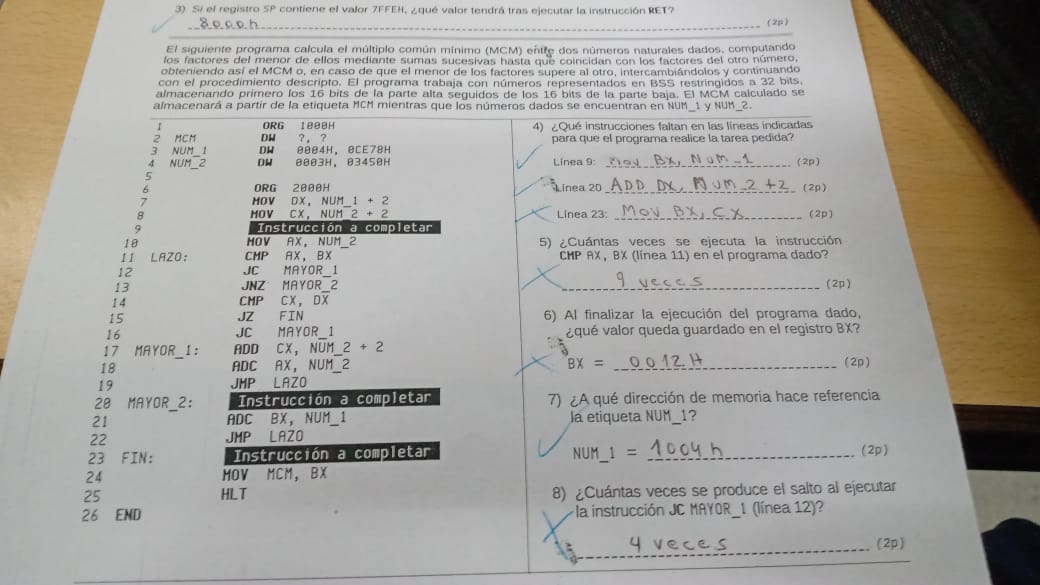 3) Si el registro SP contiene el valor 7FFEH, ¿qué valor tendrá tras ejecutar la instrucción RET?
8000h (2p)
El siguiente programa calcula el múltiplo común mínimo (MCM) entre dos números naturales dados, computando
los factores del menor de ellos mediante sumas sucesivas hasta que coincidan con los factores del otro número,
obteniendo así el MCM o, en caso de que el menor de los factores supere al otro, intercambiándolos y continuando
con el procedimiento descripto. El programa trabaja con números representados en BSS restringidos a 32 bits,
almacenando primero los 16 bits de la parte alta seguidos de los 16 bits de la parte baja. El MCM calculado se
almacenará a partir de la etiqueta MCM mientras que los números dados se encuentran en NUM_1 y NUM_2.
1 ORG 1000H
2 MCM DW ?, ?
3 NUM_1 DW 0004H, 0CE78H
4 NUM_2 DW 0003H, 03450H
5
6 ORG 2000H
7 MOV DX, NUM_1 + 2
8 MOV CX, NUM_2 + 2
9 Instrucción a completar
10 MOV AX, NUM_2
11 LAZO: CMP AX, BX
12 JC MAYOR_1
13 JNZ MAYOR_2
14 CMP CX, DX
15 JZ FIN
16 JC MAYOR_1
17 MAYOR_1: ADD CX, NUM_2 + 2
18 ADC AX, NUM_2
19 JMP LAZO
20 MAYOR_2: Instrucción a completar
21 ADC BX, NUM_1
22 JMP LAZO
23 FIN: Instrucción a completar
24 MOV MCM, BX
25 HLT
26 END
4) ¿Qué instrucciones faltan en las líneas indicadas
para que el programa realice la tarea pedida?
Línea 9: Mov BX, NUM_1 (2p)
Línea 20 ADD DX, NUM_2 +2 (2p)
Línea 23: MOV BX, CX (2p)
5) ¿Cuántas veces se ejecuta la instrucción
CMP AX, BX (línea 11) en el programa dado?
9 veces (2p)
6) Al finalizar la ejecución del programa dado,
¿qué valor queda guardado en el registro BX?
BX = 0012H (2p)
7) ¿A qué dirección de memoria hace referencia
la etiqueta NUM_1?
NUM_1 = 1004h (2p)
8) ¿Cuántas veces se produce el salto al ejecutar
la instrucción JC MAYOR_1 (línea 12)?
4 veces (2p)